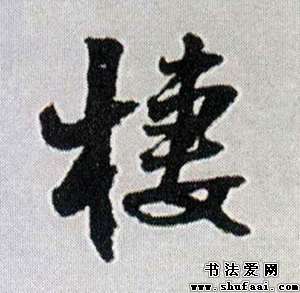 棲
书法爱网
www.shufaai.com